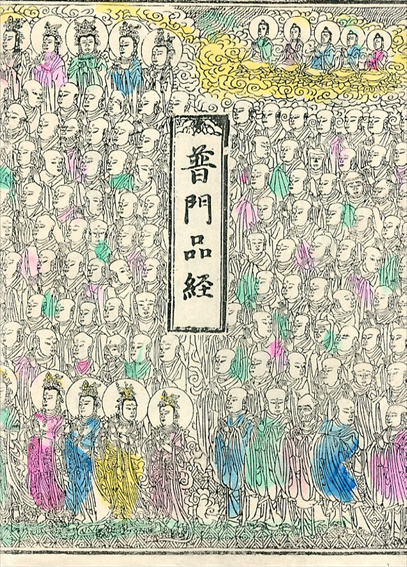 普門品経